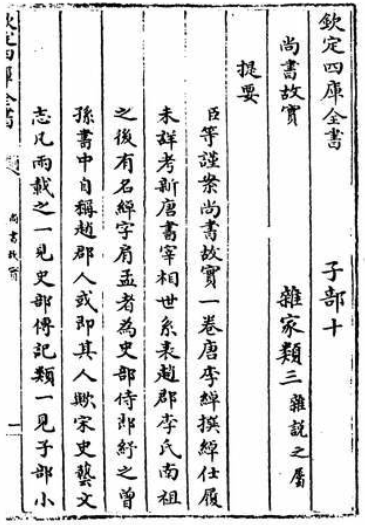 欽定四庫全書 子部十
尚書故實 雜家類三 雜說之屬
提要
臣等謹案尚書故實一卷唐李綽撰綽仕履
未詳考新唐書宰相世系表趙郡李氏南祖
之後有名綽字肩孟者為吏部侍郎紓之曾
孫書中自稱趙郡人或即其人歟宋史藝文
志凡兩載之一見史部傳記類一見子部小
欽定四庫全書
尚書故實
一